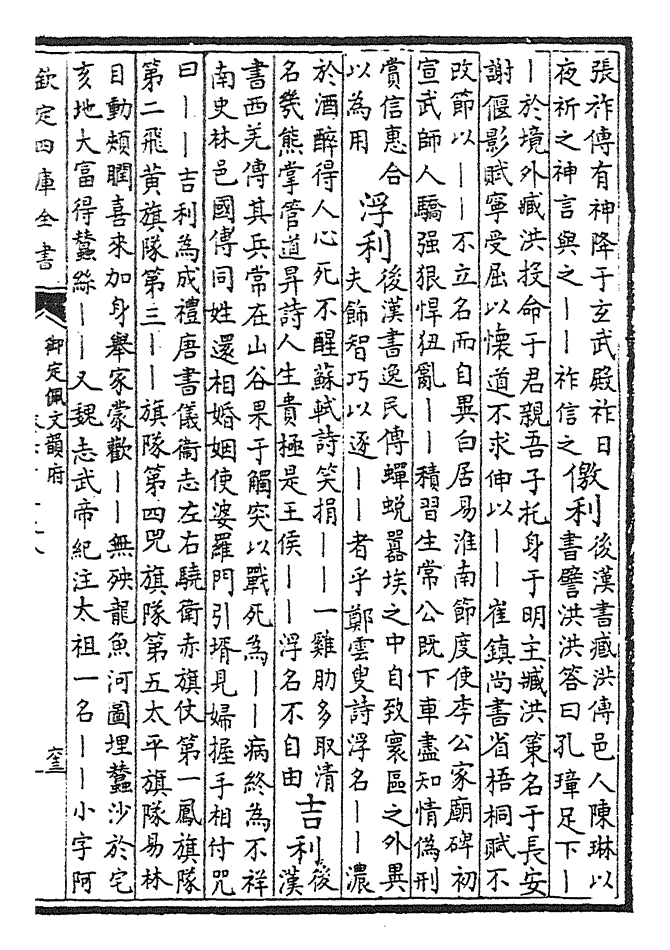 張祚傳有神降于玄武殿祚日
夜祈之神言與之——祚信之
徼利
後漢書臧洪傳邑人陳琳以
書譬洪洪答曰孔璋足下—
—於境外臧洪投命于君親吾子托身于明主臧洪策名于長安
謝偃影賦寧受屈以懷道不求伸以——崔鎮尚書省梧桐賦不
改節以——不立名而自異白居易淮南節度使李公家廟碑初
宣武師人驕强狠悍狃亂——積習生常公既下車盡知情偽刑
賞信惠合
以為用
浮利
後漢書逸民傳蟬蛻囂埃之中自致寰區之外異
夫飾智巧以逐——者乎鄭雲叟詩浮名——濃
於酒醉得人心死不醒蘇軾詩笑捐——一雞肋多取清
名幾熊掌管道昇詩人生貴極是王侯——浮名不自由
吉利
後
漢
書西羌傳其兵常在山谷果于觸突以戰死為——病終為不祥
南史林邑國傳同姓還相婚姻使婆羅門引壻見婦握手相付咒
曰——吉利為成禮唐書儀衞志左右驍衛赤旗仗第一鳳旗隊
第二飛黄旗隊第三——旗隊第四兕旗隊第五太平旗隊易林
目動頰瞤喜來加身舉家蒙歡——無殃龍魚河圖埋蠶沙於宅
亥地大富得蠶絲——又魏志武帝紀注太祖一名——小字阿
欽定四庫全書
御定佩文韻府